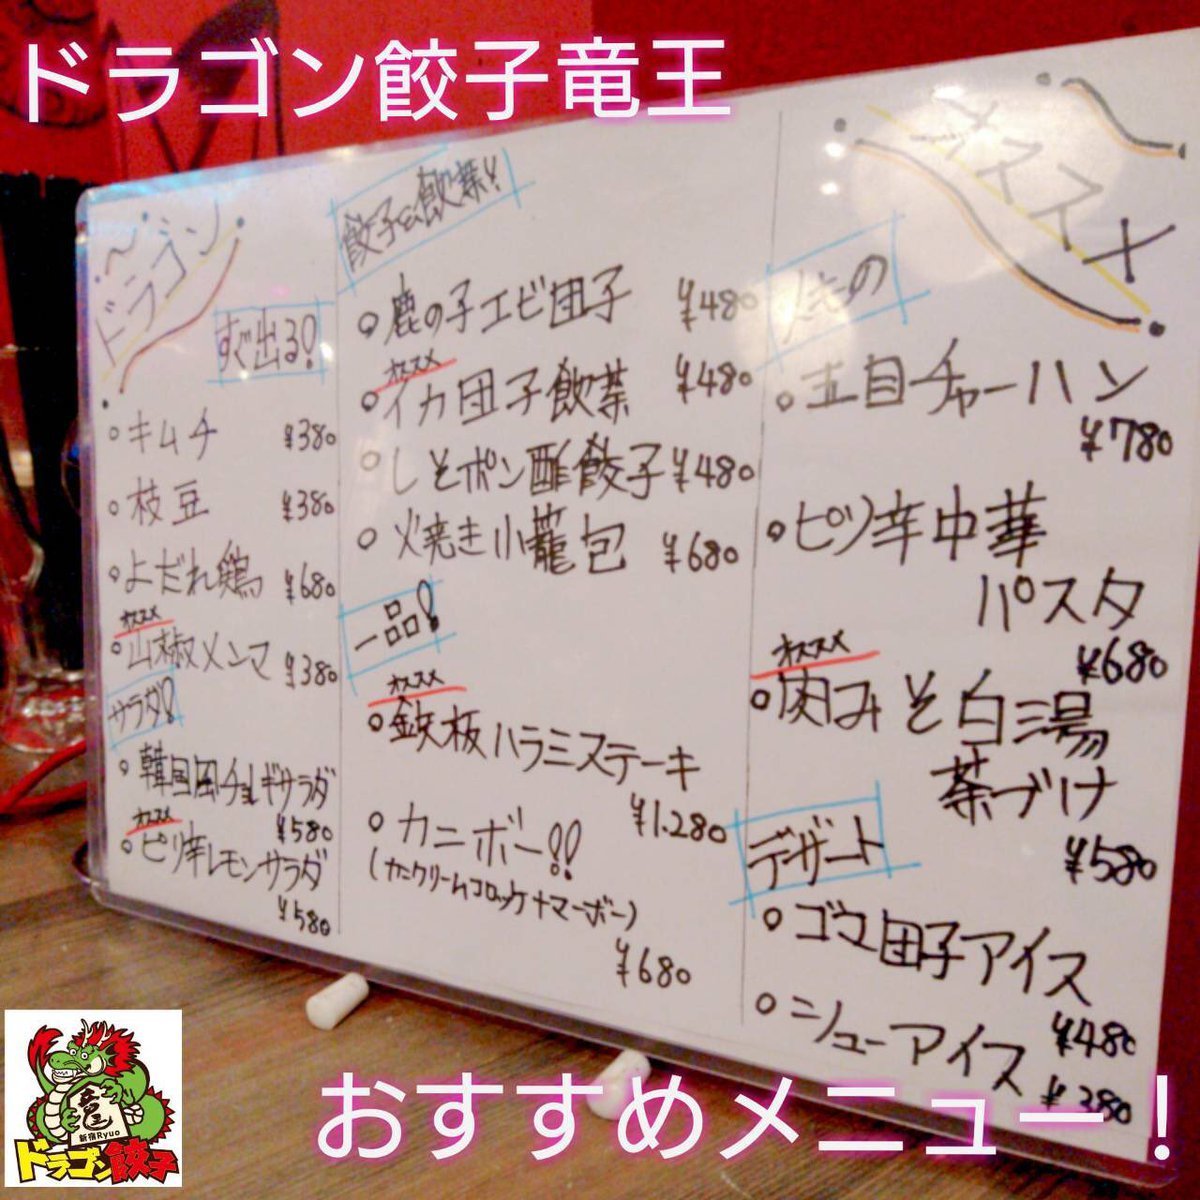 ドラゴン餃子竜王
ドラゴン
すぐ出る!
キムチ ¥380
枝豆 ¥380
よだれ鶏 ¥680
オススメ
山椒メンマ ¥380
サラダ!
韓国風チョレギサラダ
¥580
オススメ
ピリ辛レモンサラダ
¥580
餃子&飲茶!!
鹿の子エビ団子 ¥480
オススメ
イカ団子飲茶 ¥480
しそポン酢餃子 ¥480
焼き小籠包 ¥680
一品!
オススメ
鉄板ハラミステーキ
¥1.280
カニボー!!
(カニクリームコロッケ+マーボー)
¥680
オススメ
五目チャーハン
¥780
ピリ辛中華
パスタ
¥680
オススメ
肉みそ白湯
茶づけ
¥580
デザート
ゴマ団子アイス
¥480
シューアイス
¥380
おすすめメニュー!
竜王
新宿Ryuo
ドラゴン餃子